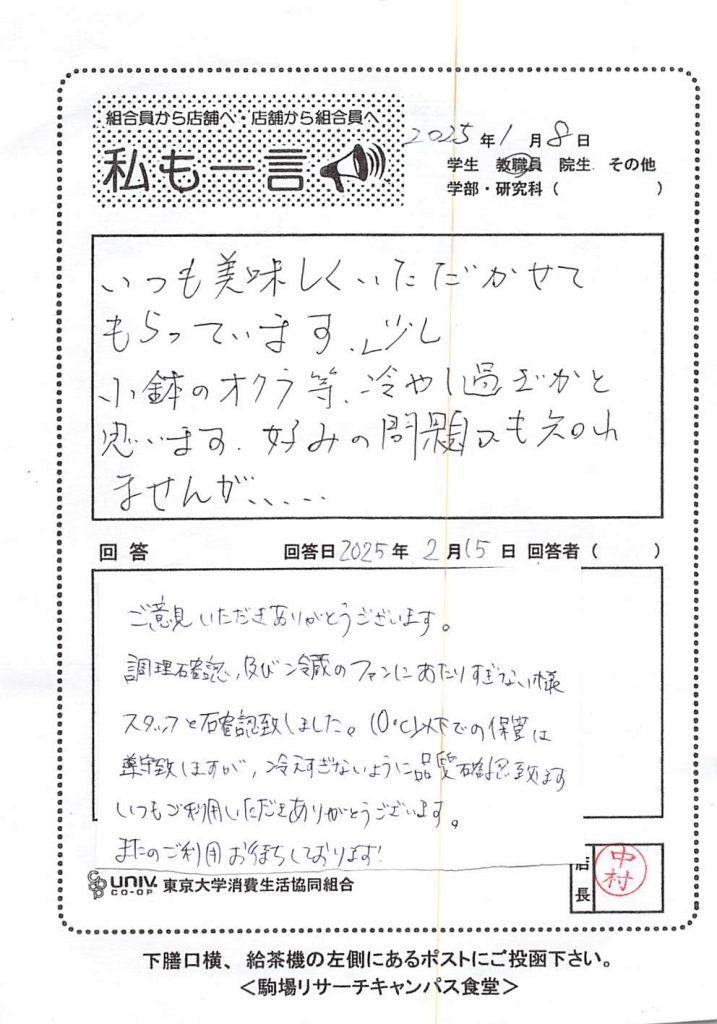 組合員から店舗へ・店舗から組合員へ
私も一言
2025年1月8日
学生 教職員 院生 その他
学部・研究科（ ）
いつも美味しくいただかせて
もらっています。少し
小鉢のオクラ等、冷やし過ぎかと
思います。好みの問題かも知れ
ませんが、、、、、
回答 回答日2025年2月15日 回答者（ ）
ご意見いただきありがとうございます。
調理確認、及び冷蔵のファンにあたりすぎない様
スタッフと確認致しました。10℃以下での保管は
遵守致しますが、冷えすぎないように品質確認致します
いつもご利用いただきありがとうございます。
またのご利用お待ちしております!
店長 中村
coop UNIV. CO-OP 東京大学消費生活協同組合
下膳口横、給茶機の左側にあるポストにご投函下さい。
＜駒場リサーチキャンパス食堂＞